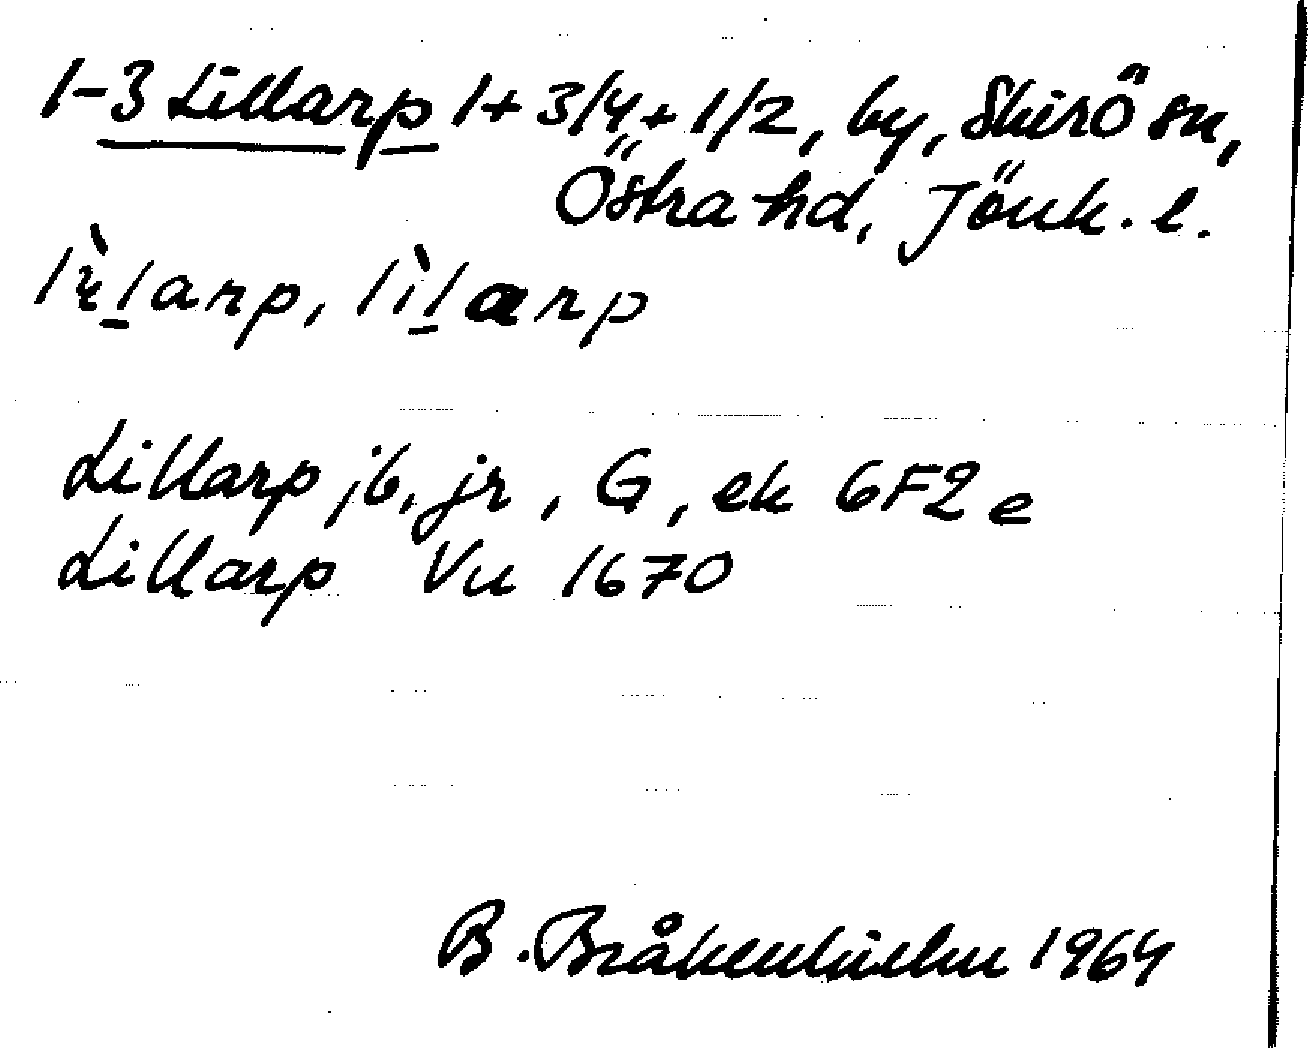 1-3 Lillarp 1 + 3/4 + 1/2, by, Skirö sn,
Östra hd, Jönk. l.
Lillarp jb, jr, G, ek 6F2e
Lillarp Vu 1670
B. Bråkenhielm 1964